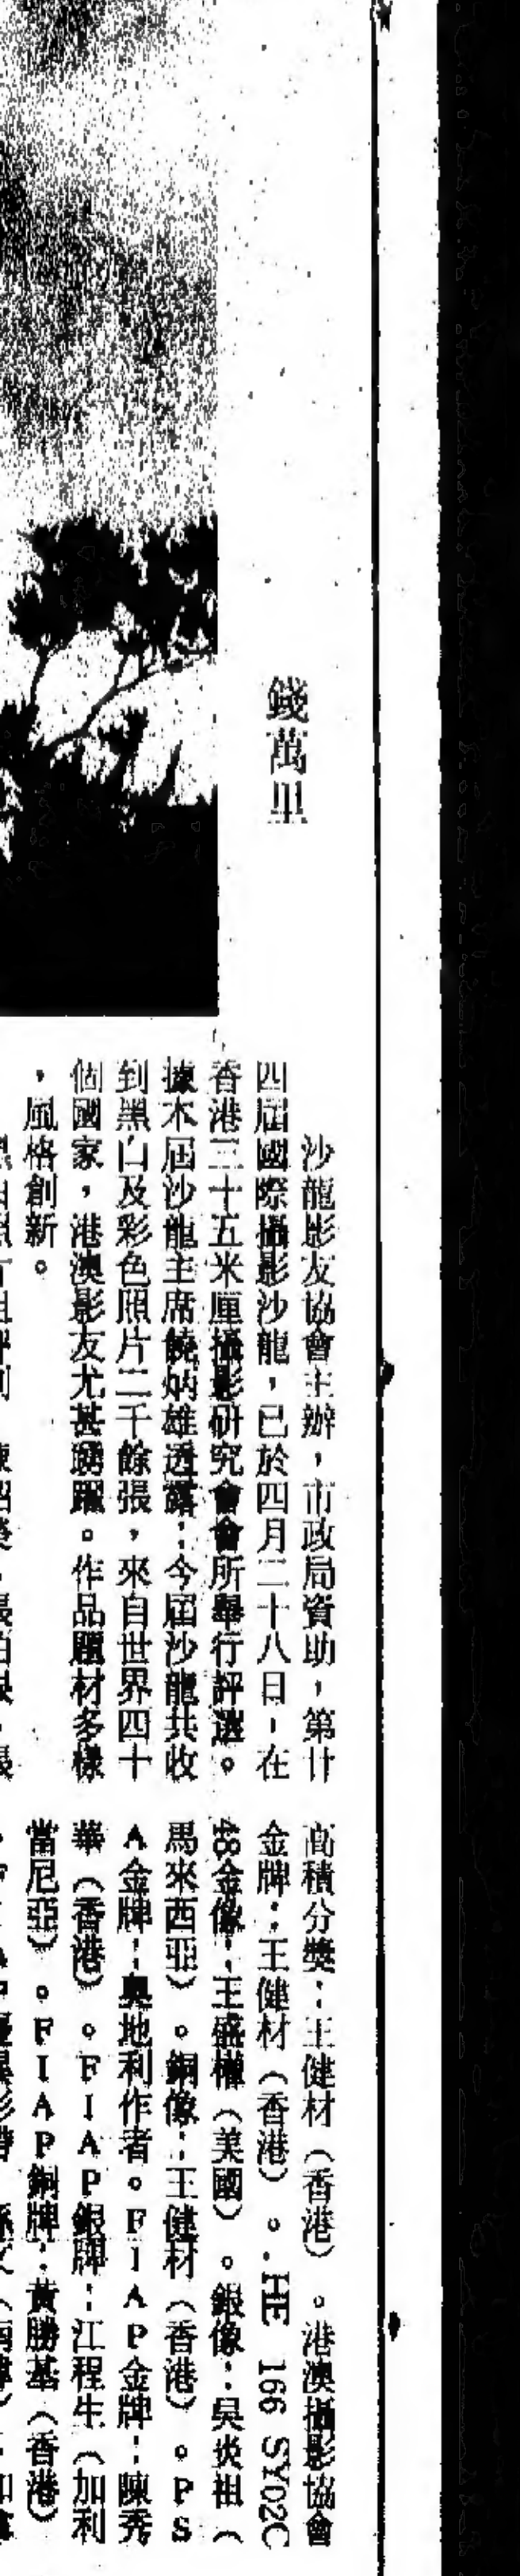 錢萬里
沙龍影友協會主辦，市政局資助，第廿
四屆國際攝影沙龍，已於四月二十八日，在
香港三十五米厘攝影研究會會所舉行評選。
據本屆沙龍主席饒炳雄透露：今屆沙龍共收
到黑白及彩色照片二千餘張，來自世界四十
個國家，港澳影友尤甚踴躍。作品題材多樣
，風格創新。
高積分獎：王健材（香港）。港澳攝影協會
金牌：王健材（香港）。HE 166 SY02C
48金像：王盛權（美國）。銀像：吳炎祖（
馬來西亞）。銅像：王健材（香港）。PS
A金牌：奧地利作者。FIAP金牌：陳秀
華（香港）。FIAP銀牌：江程生（加利
當尼亞）。FIAP銅牌：黃勝基（香港）